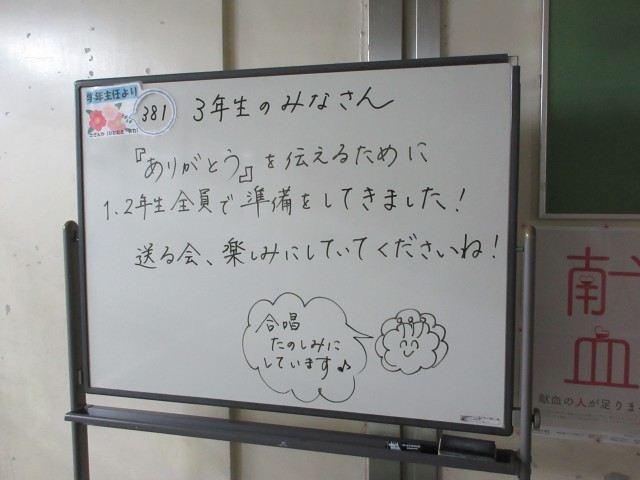 学年主任より
381
3年生のみなさん
『ありがとう』を伝えるために
1、2年生全員で準備をしてきました!
送る会、楽しみにしていてくださいね!
合唱
たのしみに
しています♪
血
献血の人が足りま